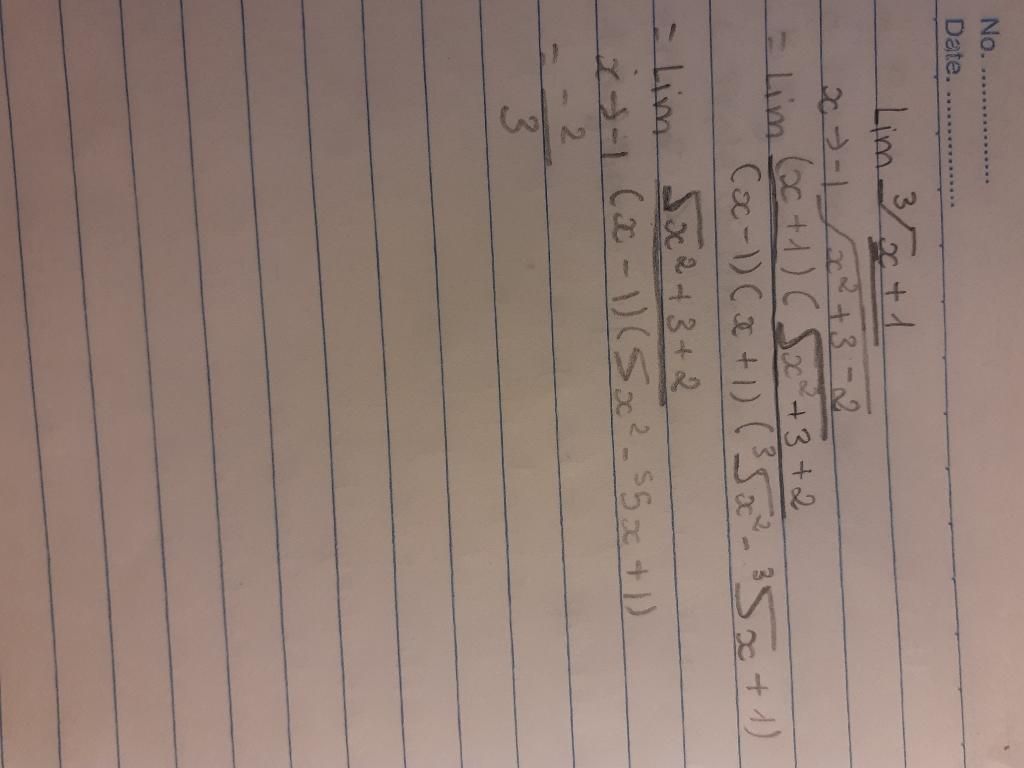 No. ...............
Date. ...............
Lim ³√x + 1
x → -1 √x² + 3 - 2
= Lim (x + 1) ( √x² + 3 + 2
(x - 1) (x + 1) (³√x² - ³√x + 1)
= Lim √x² + 3 + 2
x → -1 (x - 1) (√x² - ³√x + 1)
= - 2
3